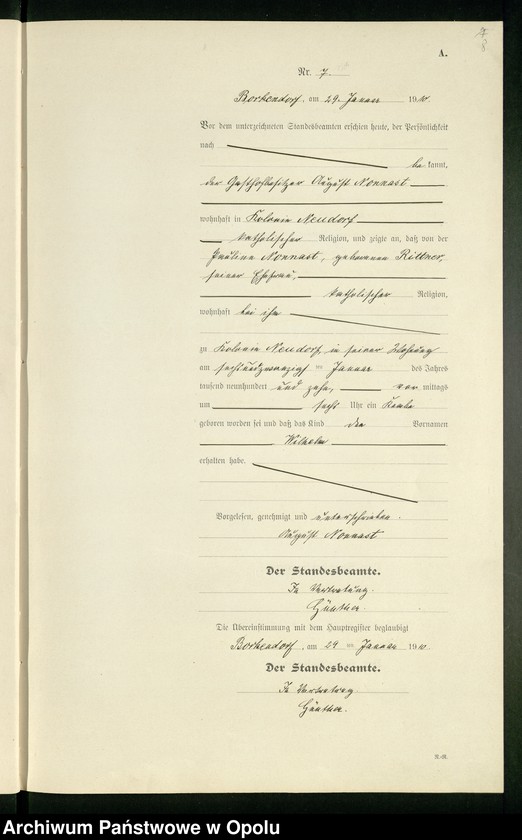 A.
Nr. 7.
Borkendorf, am 29. Januar 1910.
Vor dem unterzeichneten Standesbeamten erschien heute, der Persönlichkeit
nach bekannt,
der Gasthofbesitzer August Nonnast
wohnhaft in Kolonie Neudorf
katholischer Religion, und zeigte an, daß von der
Pauline Nonnast, geborenen Rittner,
seiner Ehefrau,
katholischer Religion,
wohnhaft bei ihm
zu Kolonie Neudorf, in seiner Wohnung
am sechsundzwanzigsten Januar des Jahres
tausend neunhundert und zehn, vor mittags
um sechs Uhr ein Knabe
geboren worden sei und daß das Kind den Vornamen
Wilhelm
erhalten habe.
Vorgelesen, genehmigt und unterschrieben.
August Nonnast
Der Standesbeamte.
In Vertretung.
Günther.
Die Übereinstimmung mit dem Hauptregister beglaubigt
Borkendorf, am 29 ten Januar 1910
Der Standesbeamte.
In Vertretung
Günther.
Archiwum Państwowe w Opolu